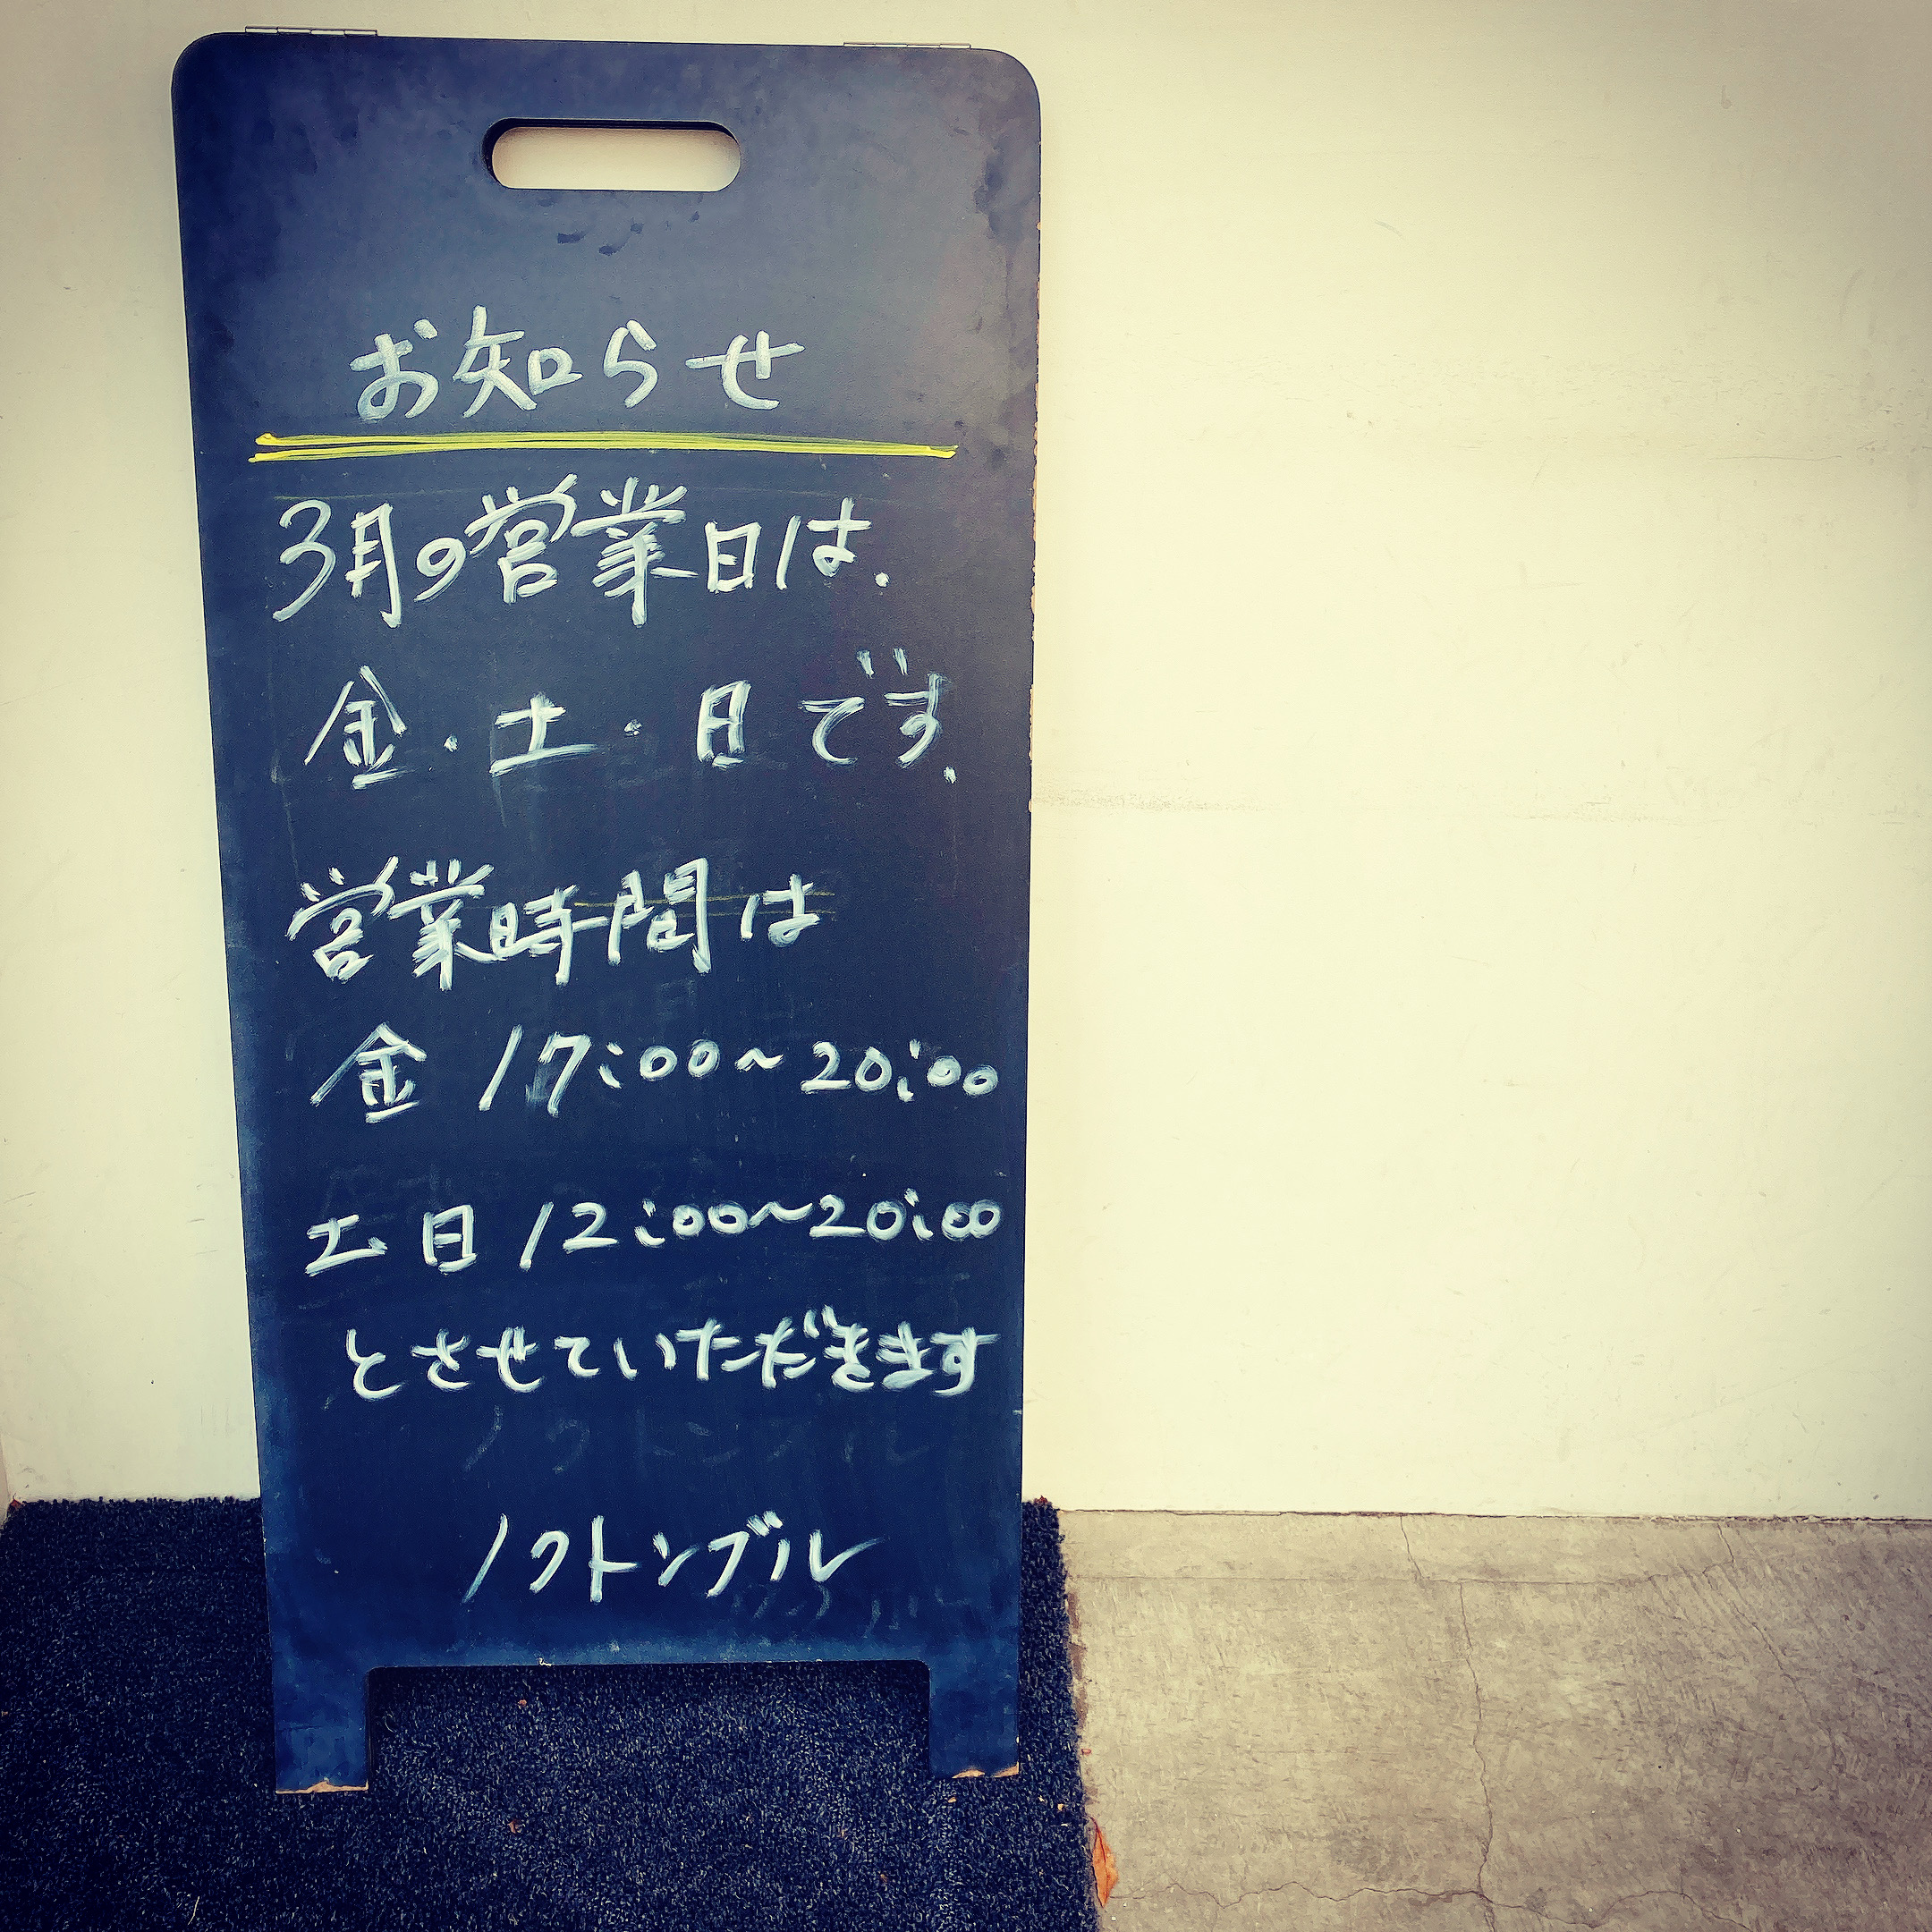 お知らせ
3月の営業日は.
金・土・日です.
営業時間は
金 17:00~20:00
土日 12:00~20:00
とさせていただきます
ノクトンブル